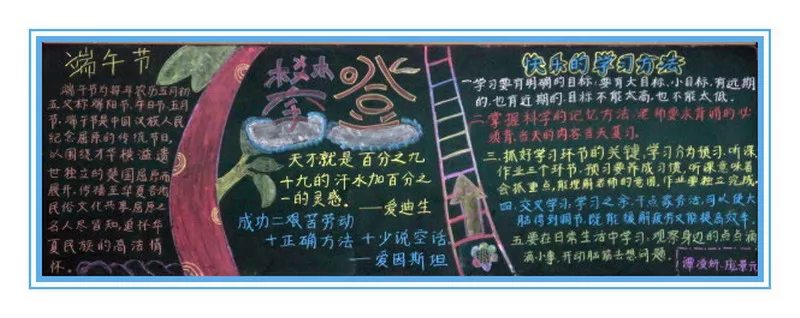 端午节
端午节为每年农历五月初
五又称端阳节,午日节,五月
节,端午节是中国汉族人民
纪念屈原的传统节日,
以围绕才华横溢遗
世独立的楚国屈原而
展开,传播至华夏各地
民俗文化共享屈原之
名人尽皆知,追怀华
夏民族的高洁情
怀。
攀登
天才就是百分之九
十九的汗水加百分之
一的灵感。——爱迪生
成功=艰苦劳动
+正确方法+少说空话
——爱因斯坦
快乐的学习方法
一学习要有明确的目标,要有大目标,小目标,有远期
的,也有近期的目标不能太高,也不能太低。
二掌握科学的记忆方法,老师要求背诵的必
须背,当天的内容当天复习。
三、抓好学习环节的关键,学习分为预习、听课
作业三个环节,预习要养成习惯,听课意味着
会抓重点,能理解老师的意图,作业要独立完成。
四、交叉学习,学习之余,干点家务活,可以使大
脑得到调节,既能缓解疲劳又能提高效率。
五要在日常生活中学习,观察身边的点点滴
滴小事,开动脑筋去想问题。